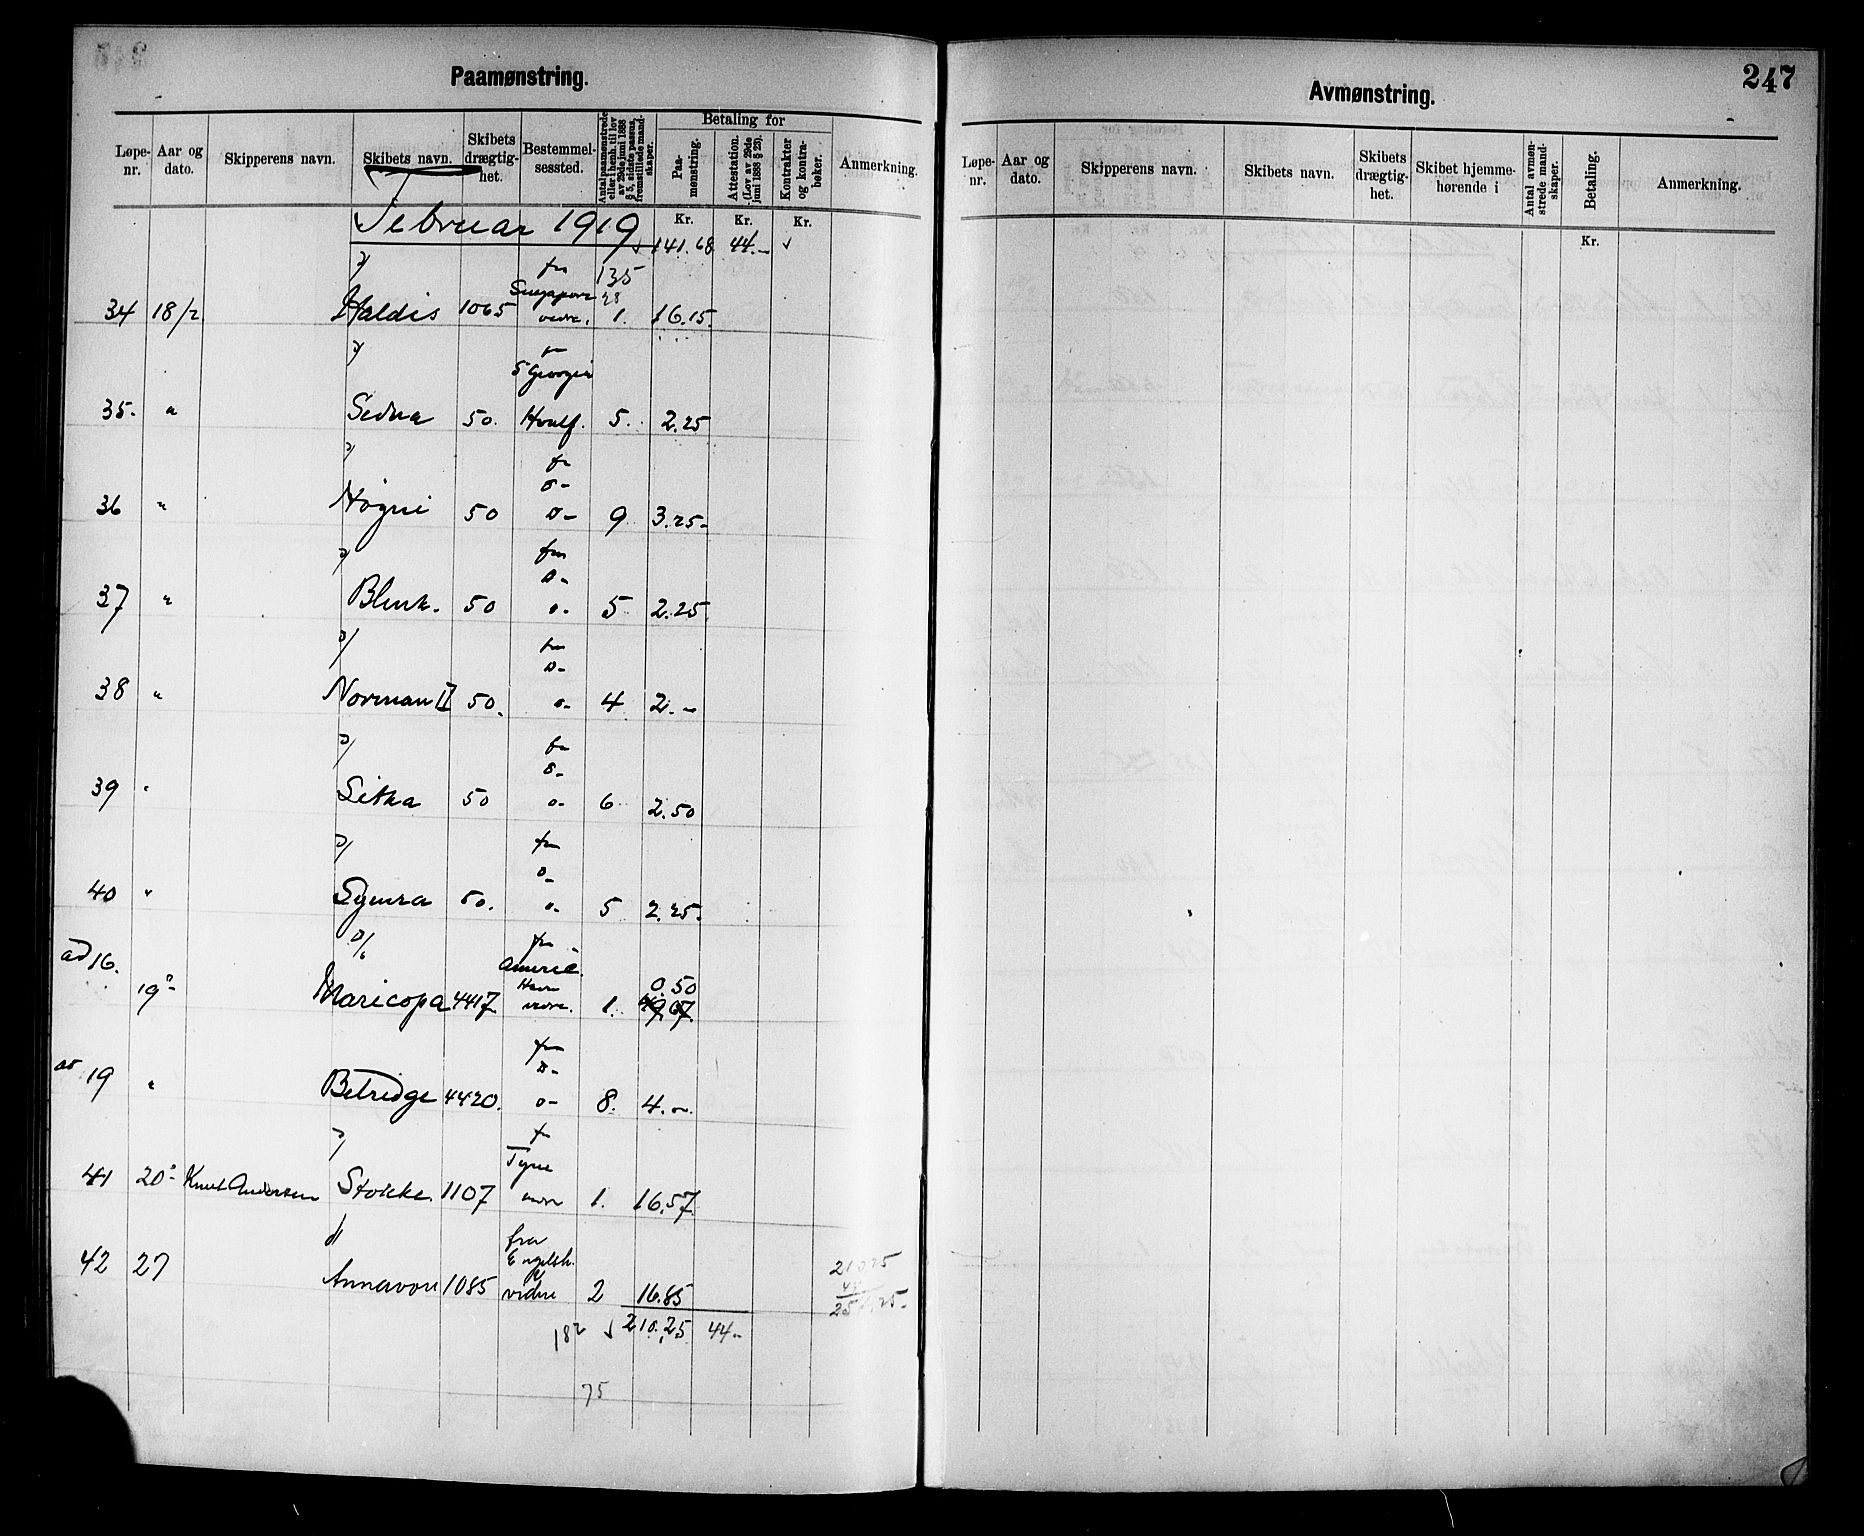 Paamønstring.
Løpe-nr. Aar og dato. Skipperens navn. Skibets navn. Skibets drægtig-het. Bestemmel-sessted. Antal paamønstrede eller i henh. til lov av 29de juni 1888 § 5, sidste passus, fremstillede mand-skaper. Betaling for Paa-mønstring. Attestation. (Lov av 29de juni 1888 § 23). Kontrakter og kontra-bøker. Anmerkning.
Kr. Kr. Kr.
Februar 1919 141.68 44.–
fra 135
Singapore 28
34 18/2 Haldis 1065 videre. 1. 16.15.
fra
S Georgia
35. " Sedna 50. Hvalf. 5. 2.25
fra
D–
36 " Høgni 50 D– 9 3.25–
fra
D–
37 " Blink. 50 D– 5 2.25
fra
D–
38 " Norman II 50. D– 4 2.–
fra
D–
39 " Sitka 50 D– 6 2.50
fra
D–
40 " Symra 50. D– 5 2.25.
fra
ad 16. Americ.
Havn 0.50
19 D– Maricopa 4417 videre. 1. 49.67.
fra
D–
ad 19 " Betridge 4420. D– 8. 4.–
fra
Tyne
41 20 D– Knut Andersen Stokke. 1107 videre 1. 16.57.
fra
Engelsk. 210.25
42 27 Annavore 1085 videre 2 16.85 44
254.25.
182 210.25 44–
75
247
Avmønstring.
Løpe-nr. Aar og dato. Skipperens navn. Skibets navn. Skibets drægtig-het. Skibet hjemme-hørende i Antal avmøn-strede mand-skaper. Betaling. Anmerkning.
Kr.